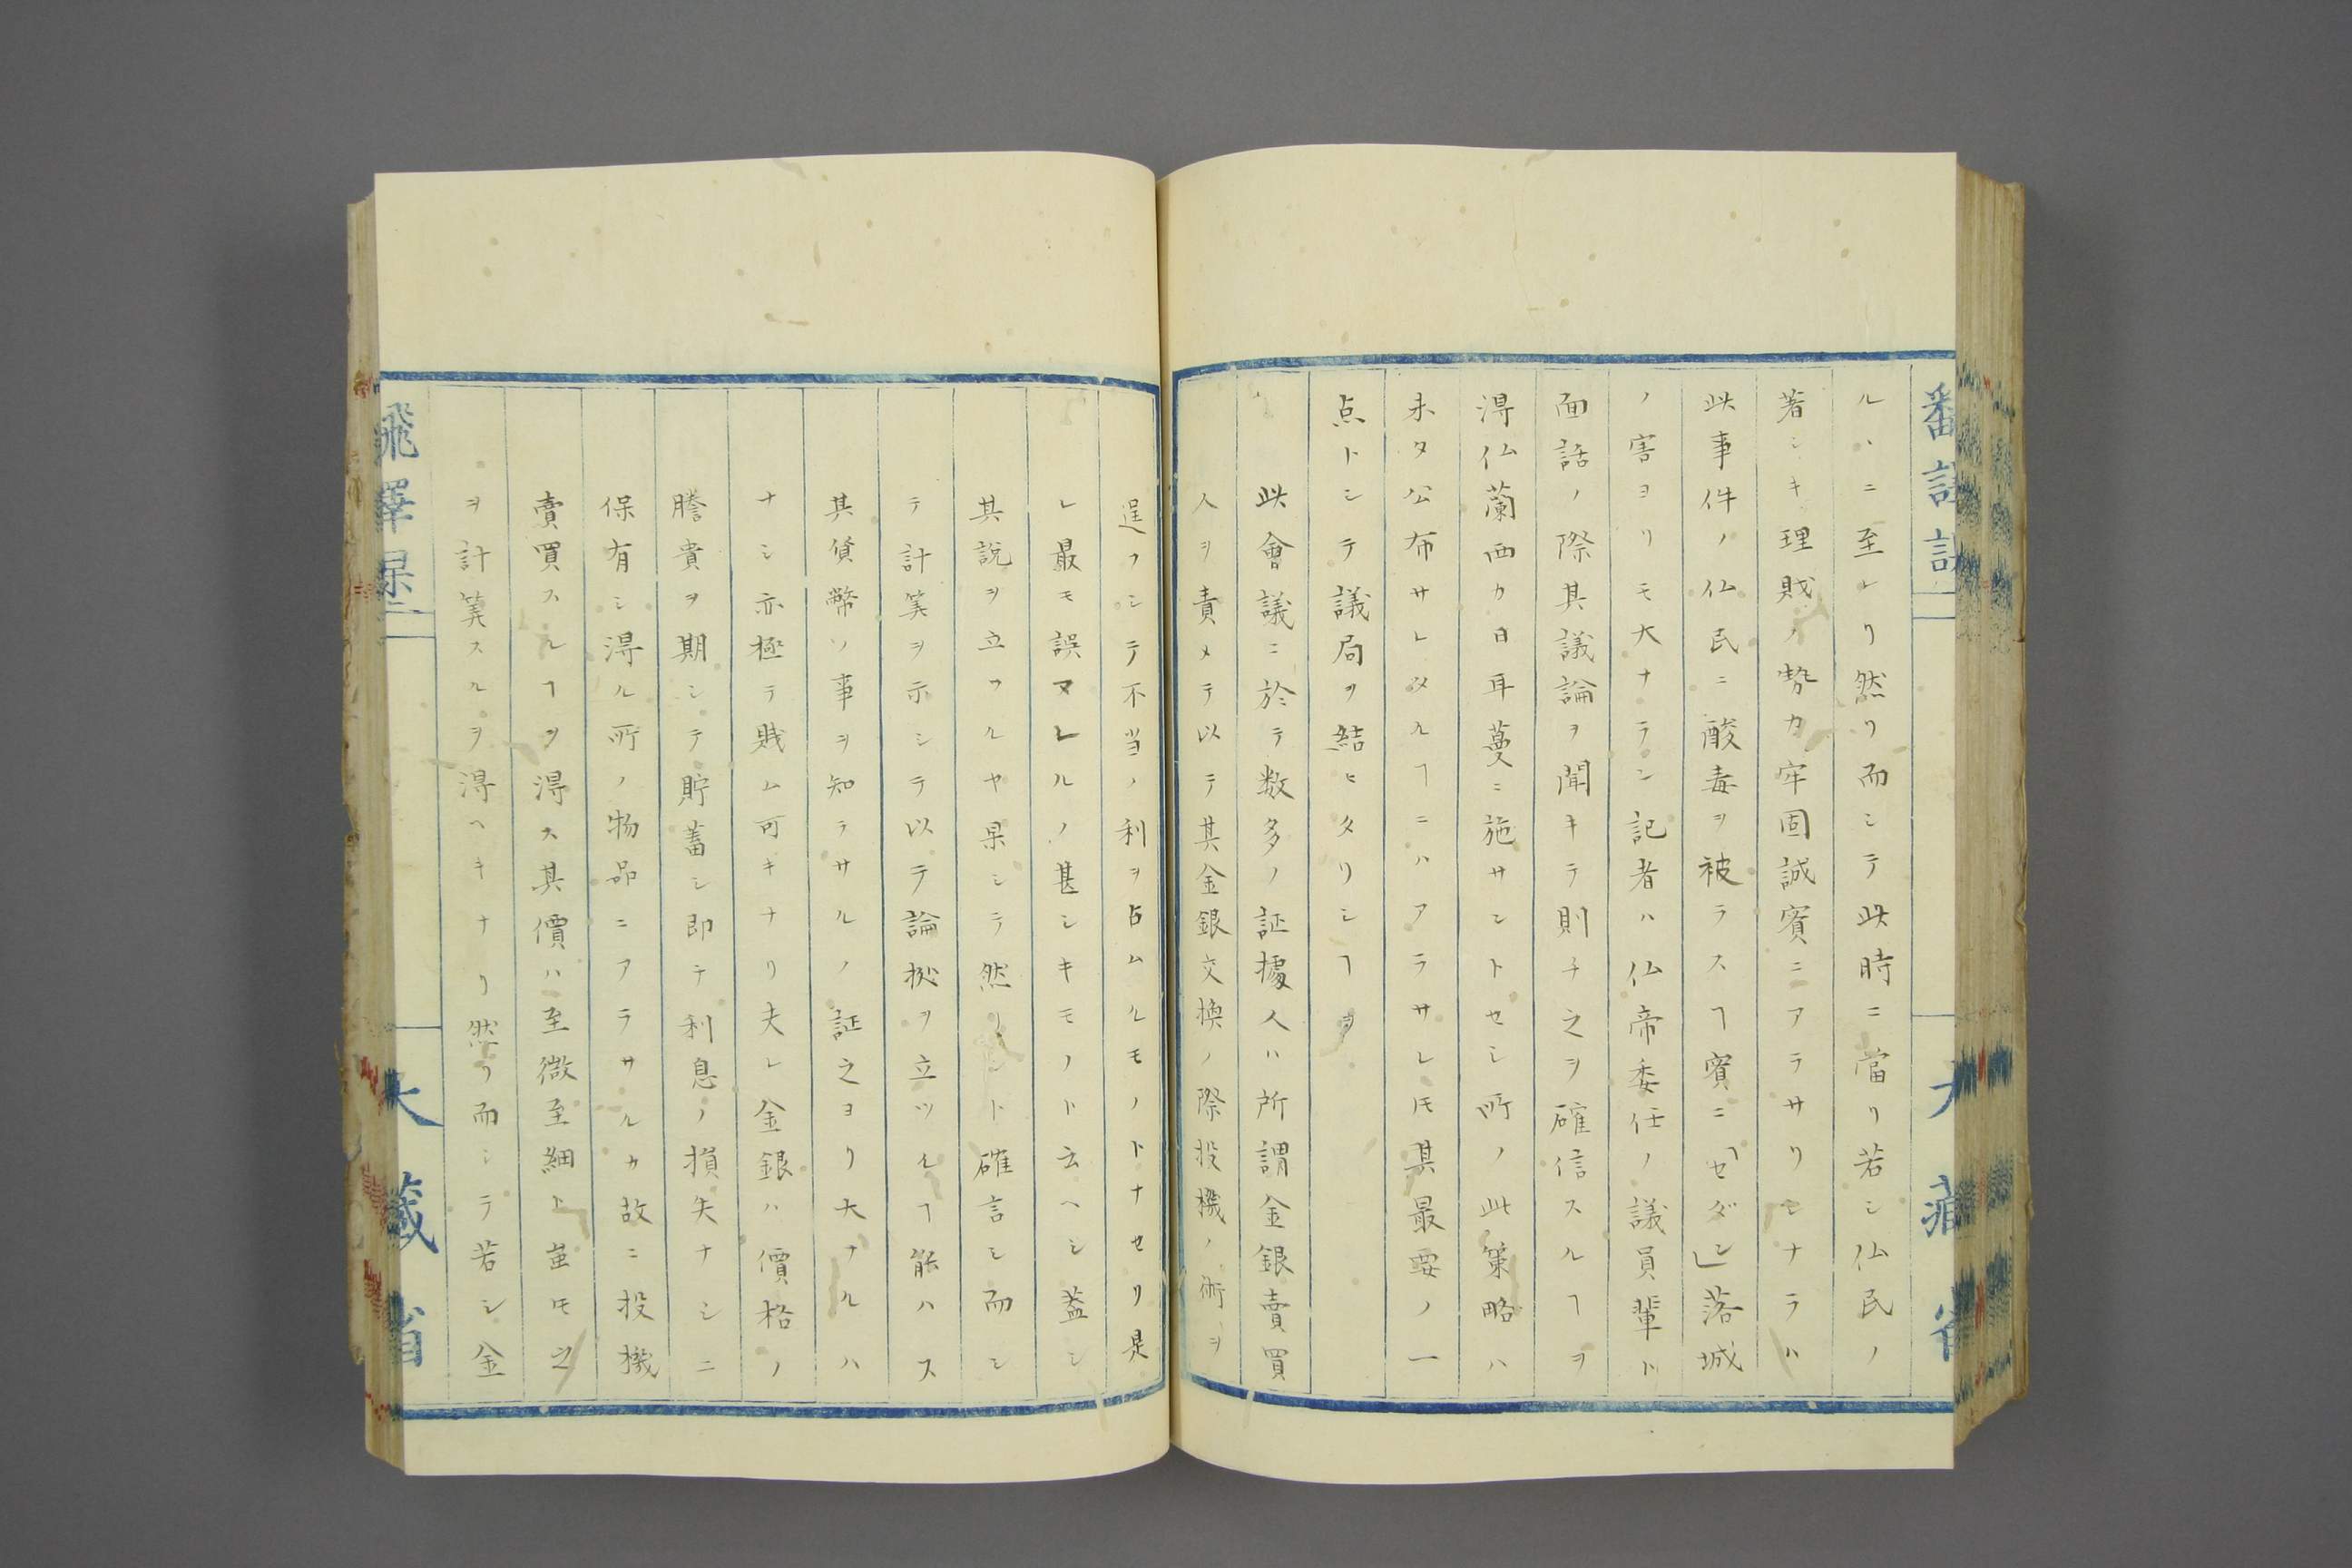 ルヽニ至レリ然リ而シテ此時ニ當リ若シ仏民ノ
著シキ理財ノ勢力牢固誠實ニアラサリシナラハ
此事件ノ仏民ニ酸毒ヲ被ラスヿ實ニ「セダン」落城
ノ害ヨリモ大ナラン記者ハ仏帝委任ノ議員輩ト
面話ノ際其議論ヲ聞キテ則チ之ヲ確信スルヿヲ
得仏蘭西カ日耳蔓ニ施サントセシ所ノ此策略ハ
未タ公布サレタルヿニハアラサレ𪜈其最要ノ一
点トシテ議局ヲ結ヒタリシヿヲ
此會議ニ於テ数多ノ証據人ハ所謂金銀賣買
人ヲ責メテ以テ其金銀交換ノ際投機ノ術ヲ
逞フシテ不当ノ利ヲ占ムルモノトナセリ是
レ最モ誤マレルノ甚シキモノト云ヘシ蓋シ
其説ヲ立ツルヤ果シテ然リント確言シ而シ
テ計筭ヲ示シテ以テ論拠ヲ立ツルヿ能ハス
其貨幣ノ事ヲ知ラサルノ証之ヨリ大ナルハ
ナシ亦極テ賎ム可キナリ夫レ金銀ハ價格ノ
騰貴ヲ期シテ貯蓄シ即テ利息ノ損失ナシニ
保有シ得ル所ノ物品ニアラサルカ故ニ投機
賣買スルヿヲ得ス其價ハ至微至細ト虽𪜈之
ヲ計筭スルヲ得ヘキナリ然リ而シテ若シ金
大藏省